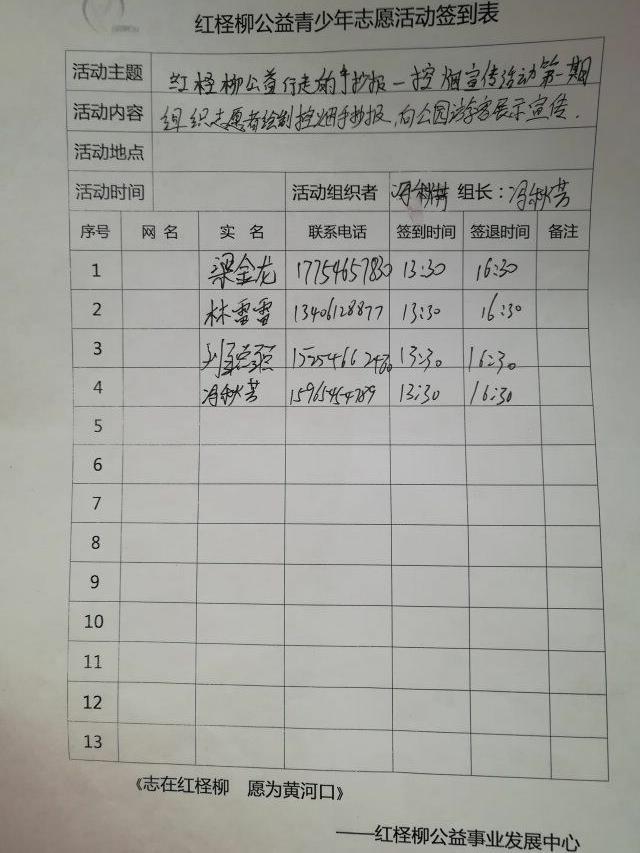 红柽柳公益青少年志愿活动签到表
活动主题 红柽柳公益行走的手抄报一控烟宣传活动第一期
活动内容 组织志愿者绘制控烟手抄报,向公园游客展示宣传.
活动地点
活动时间 活动组织者 冯秋芳 组长:冯秋芳
序号 网名 实名 联系电话 签到时间 签退时间 备注
1 梁金龙 17754657830 13:30 16:30
2 林雷雷 13406128877 13:30 16:30
3 13:30 16:30
4 冯秋芳 13:30 16:30
5
6
7
8
9
10
11
12
13
《志在红柽柳 愿为黄河口》
——红柽柳公益事业发展中心